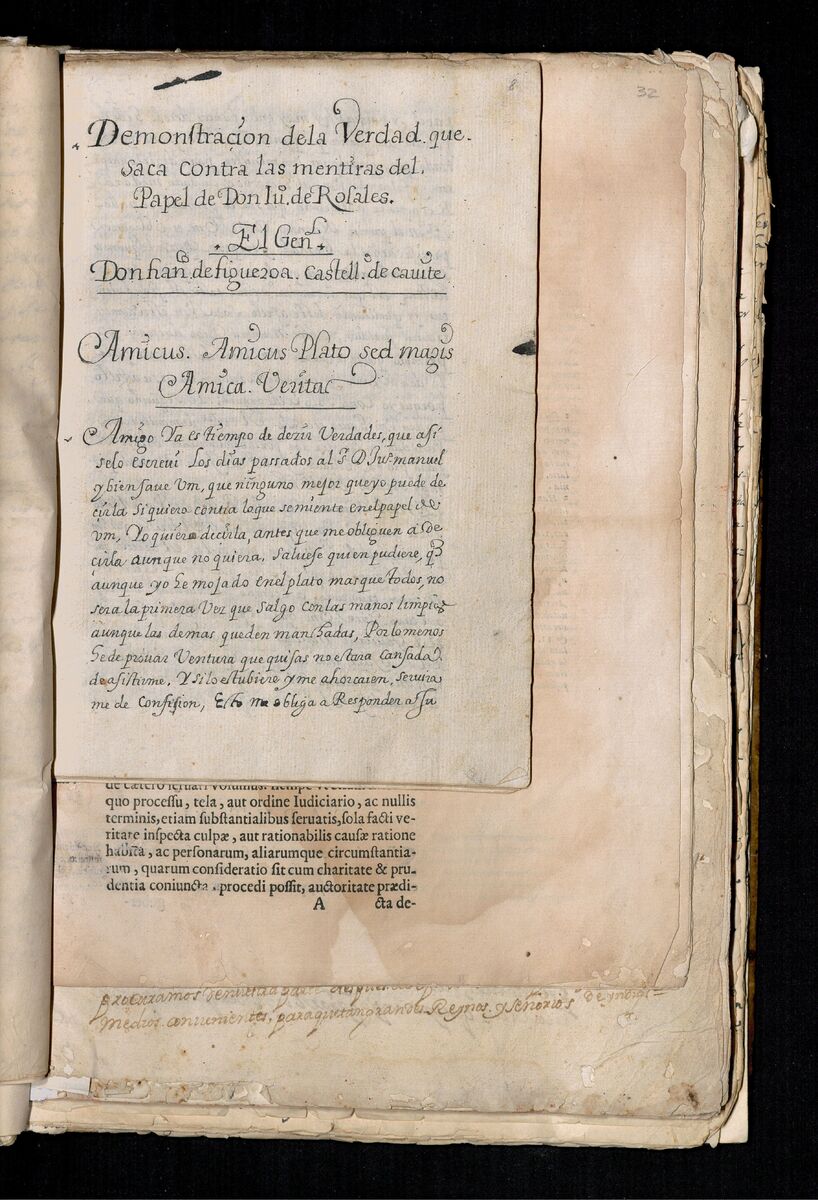 8
32
Demonstraçion dela Verdad. que.
saca contra las mentiras del.
Papel de Don Iuº. de Rosales.
El Genˡ.
Don fran.ᶜᵒ de figueroa. Castell.º de cauite
Amicus. Amicus Plato sed magis
Amica. Veritas
Amigo Ya es tiempo de dezir Verdades, que asi
selo escreui los dias passados al Sʳ D. Juº manuel
y bien saue Vm, que ninguno mejor que yo puede de
cirla si quiero contra loque semiente enel papel de
Vm, Yo quiero decirla, antes que me obliguen a de
cirla aunque no quiera. Saluese quien pudiere, q̃
aunque yo he mojado enel plato mas que todos, no
sera la primera Vez que salgo con las manos limpias
aunque las demas queden manchadas, Por lo menos
he de prouar Ventura que quisas no estara cansada
de asistirme, Y si lo estubiere y me ahorcaren, seruira
me de Confision, Esto me obliga a Responder a su
de cætero seruari volumus. nempè
quo processu, tela, aut ordine Iudiciario, ac nullis
terminis, etiam substantialibus seruatis, sola facti ve-
ritate inspecta culpæ, aut rationabilis causæ ratione
habita, ac personarum, aliarumque circumstantia-
rum, quarum consideratio sit cum charitate & pru-
dentia coniuncta procedi possit, auctoritate prædi-
A cta de-
procuramos
medios conuenientes, para que tan grandes Reynos. y señorios